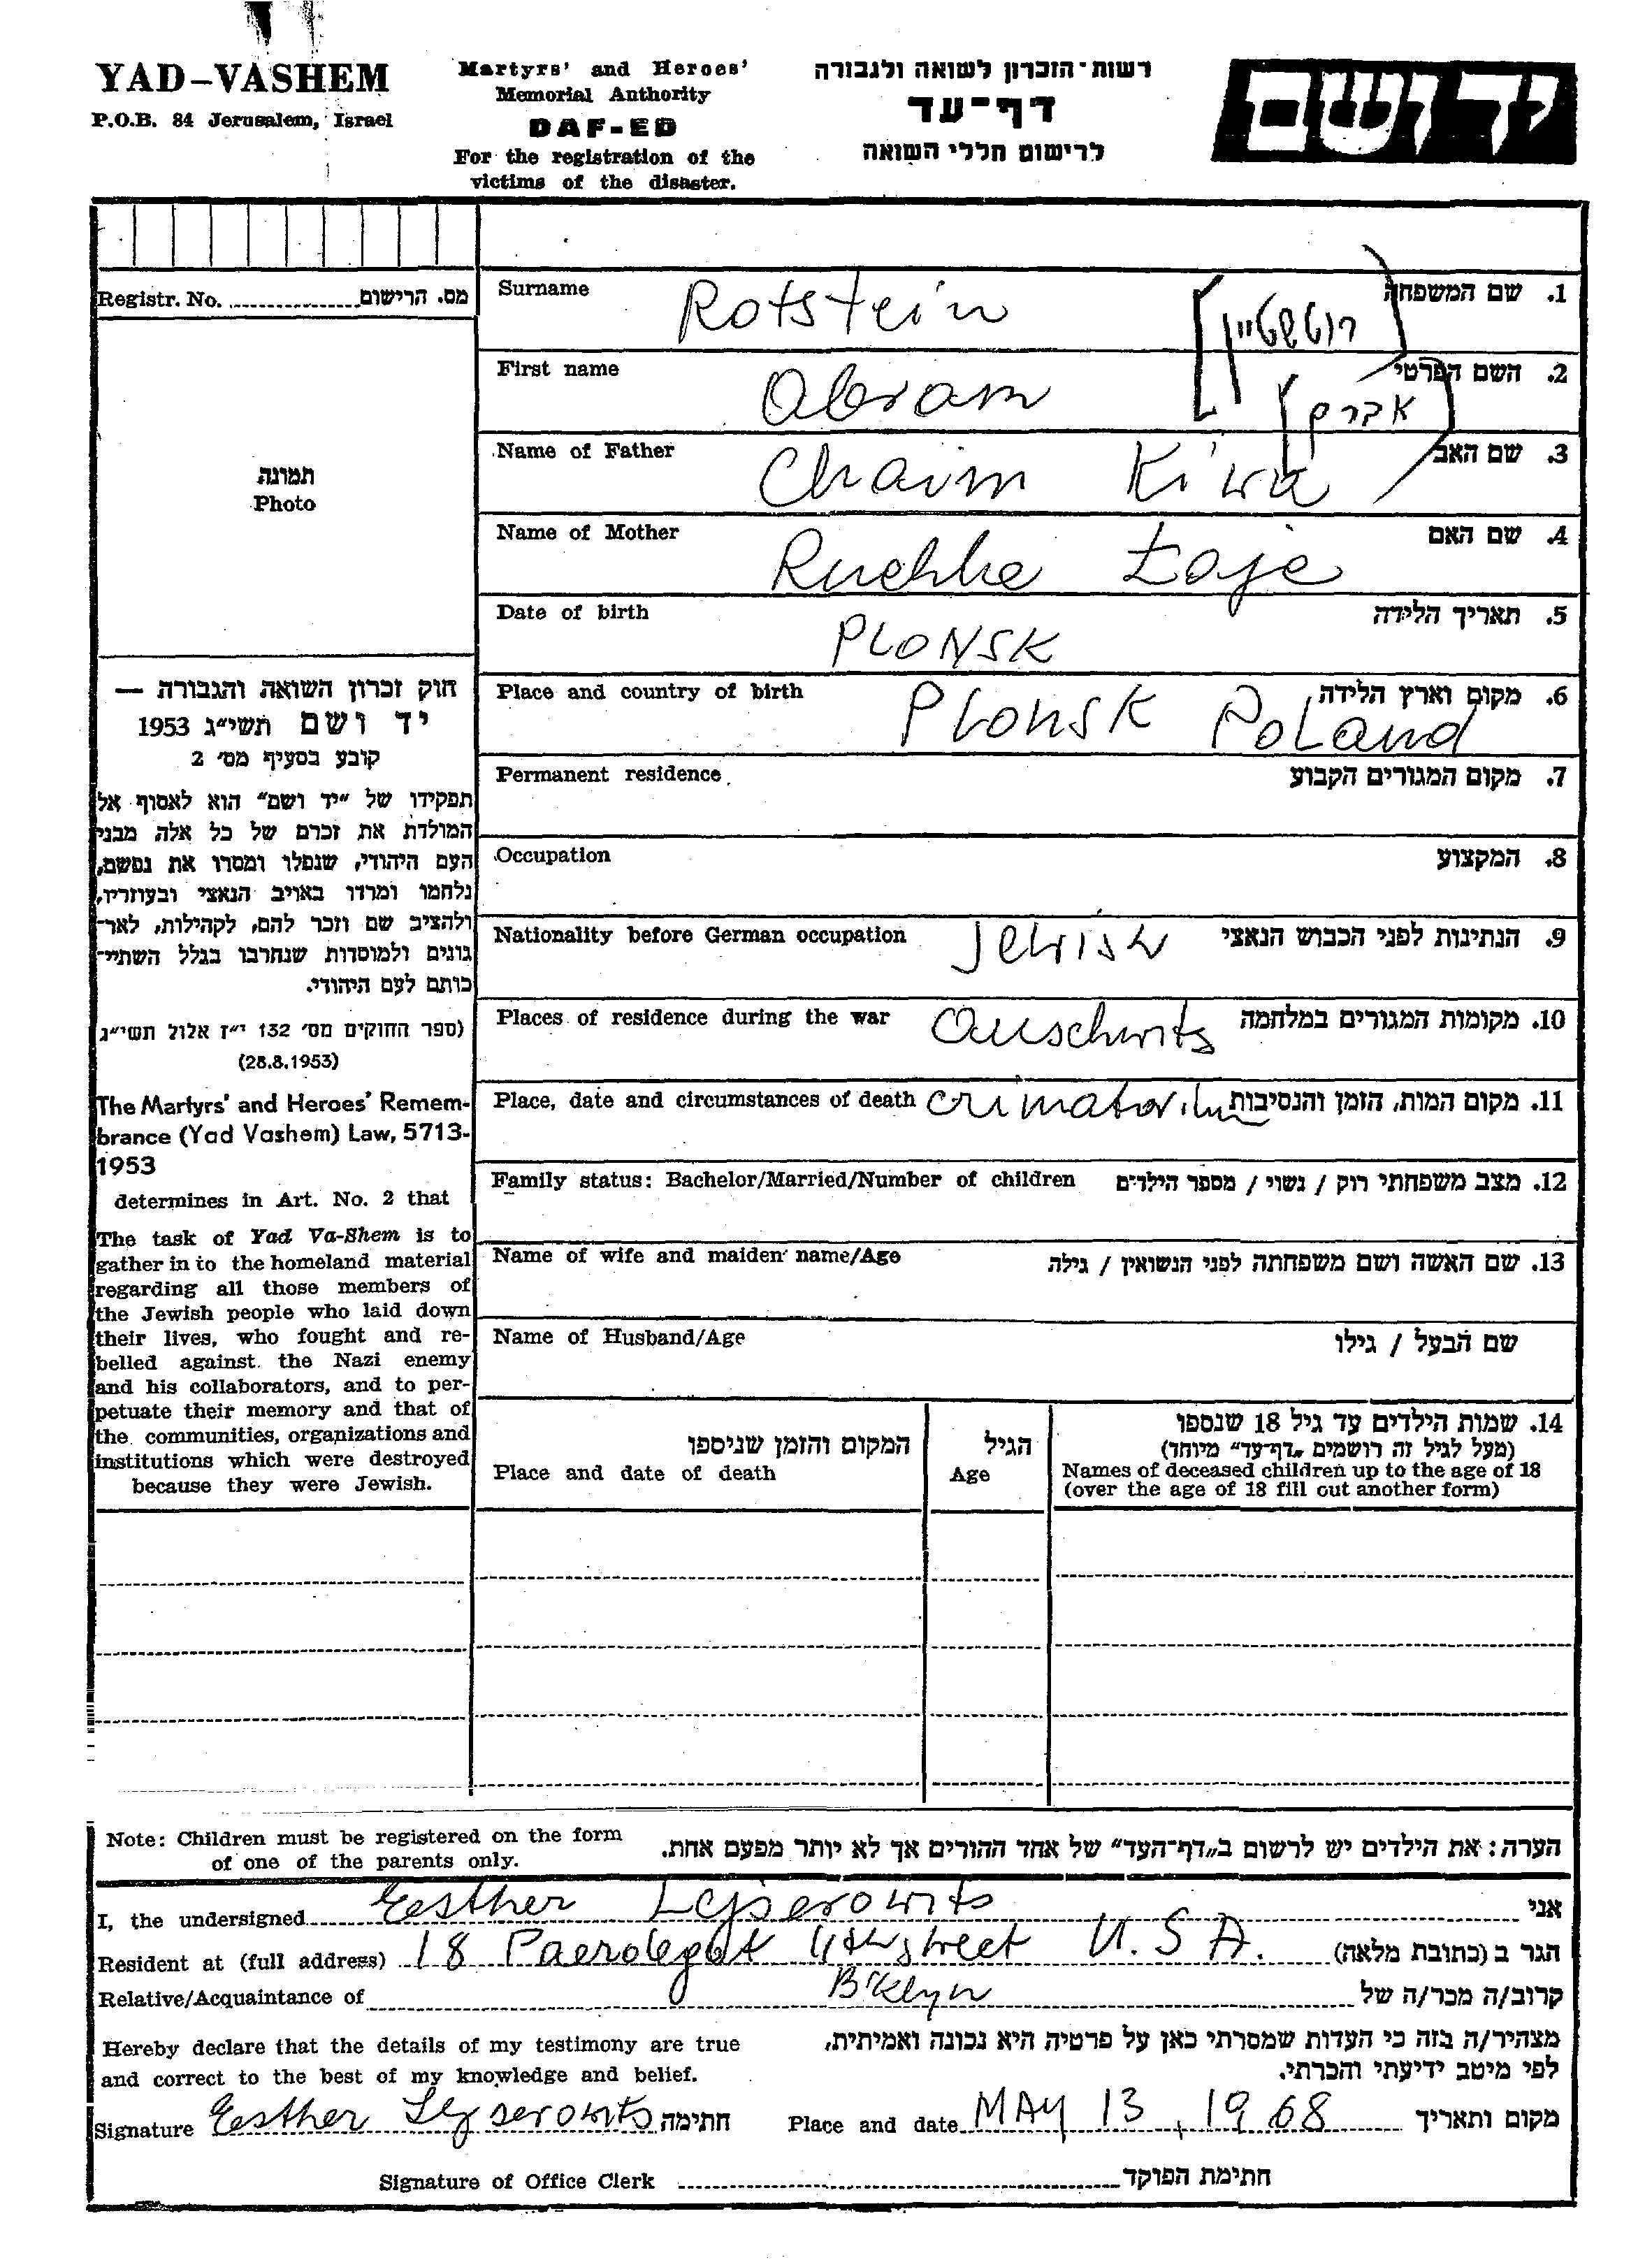 YAD-VASHEM
P.O.B. 84 Jerusalem, Israel
Martyrs' and Heroes'
Memorial Authority
DAF-ED
For the registration of the
victims of the disaster.
רשות-הזכרון לשואה ולגבורה
דף-עד
לרישום חללי השואה
יד ושם
Registr. No. מס. הרישום
תמונה
Photo
חוק זכרון השואה והגבורה —
יד ושם תשי"ג 1953
קובע בסעיף מס' 2
תפקידו של "יד ושם" הוא לאסוף אל
המולדת את זכרם של כל אלה מבני
העם היהודי, שנפלו ומסרו את נפשם,
נלחמו ומרדו באויב הנאצי ובעוזריו,
ולהציב שם וזכר להם, לקהילות, לאר-
גונים ולמוסדות שנחרבו בגלל השתיי-
כותם לעם היהודי.
(ספר החוקים מס' 132 י"ז אלול תשי"ג
(28.8.1953)
The Martyrs' and Heroes' Remem-
brance (Yad Vashem) Law, 5713-
1953
determines in Art. No. 2 that
The task of Yad Va-Shem is to
gather in to the homeland material
regarding all those members of
the Jewish people who laid down
their lives, who fought and re-
belled against the Nazi enemy
and his collaborators, and to per-
petuate their memory and that of
the communities, organizations and
institutions which were destroyed
because they were Jewish.
Surname Rotstein רוטשטיין 1. שם המשפחה
First name Abram אברם 2. השם הפרטי
Name of Father Chaim Kiwa 3. שם האב
Name of Mother Ruchke Łaje 4. שם האם
Date of birth PLONSK 5. תאריך הלידה
Place and country of birth PLONSK POLand 6. מקום וארץ הלידה
Permanent residence 7. מקום המגורים הקבוע
Occupation 8. המקצוע
Nationality before German occupation JEWISH 9. הנתינות לפני הכבוש הנאצי
Places of residence during the war Auschwits 10. מקומות המגורים במלחמה
Place, date and circumstances of death crimatorium 11. מקום המות, הזמן והנסיבות
Family status: Bachelor/Married/Number of children 12. מצב משפחתי רוק / נשוי / מספר הילדים
Name of wife and maiden name/Age 13. שם האשה ושם משפחתה לפני הנשואין / גילה
Name of Husband/Age שם הבעל / גילו
המקום והזמן שניספו
Place and date of death
הגיל
Age
14. שמות הילדים עד גיל 18 שנספו
(מעל לגיל זה רושמים "דף-עד" מיוחד)
Names of deceased children up to the age of 18
(over the age of 18 fill out another form)
Note: Children must be registered on the form
of one of the parents only.
הערה: את הילדים יש לרשום ב"דף-העד" של אחד ההורים אך לא יותר מפעם אחת.
I, the undersigned Eesther Lejserowits אני
Resident at (full address) 18 Paerdegat 11th street U.S.A. הגר ב (כתובת מלאה)
Relative/Acquaintance of B'klyn קרוב/ה מכר/ה של
Hereby declare that the details of my testimony are true
and correct to the best of my knowledge and belief.
מצהיר/ה בזה כי העדות שמסרתי כאן על פרטיה היא נכונה ואמיתית,
לפי מיטב ידיעתי והכרתי.
Signature Eesther Lejserowits חתימה Place and date MAY 13, 1968 מקום ותאריך
Signature of Office Clerk חתימת הפוקד